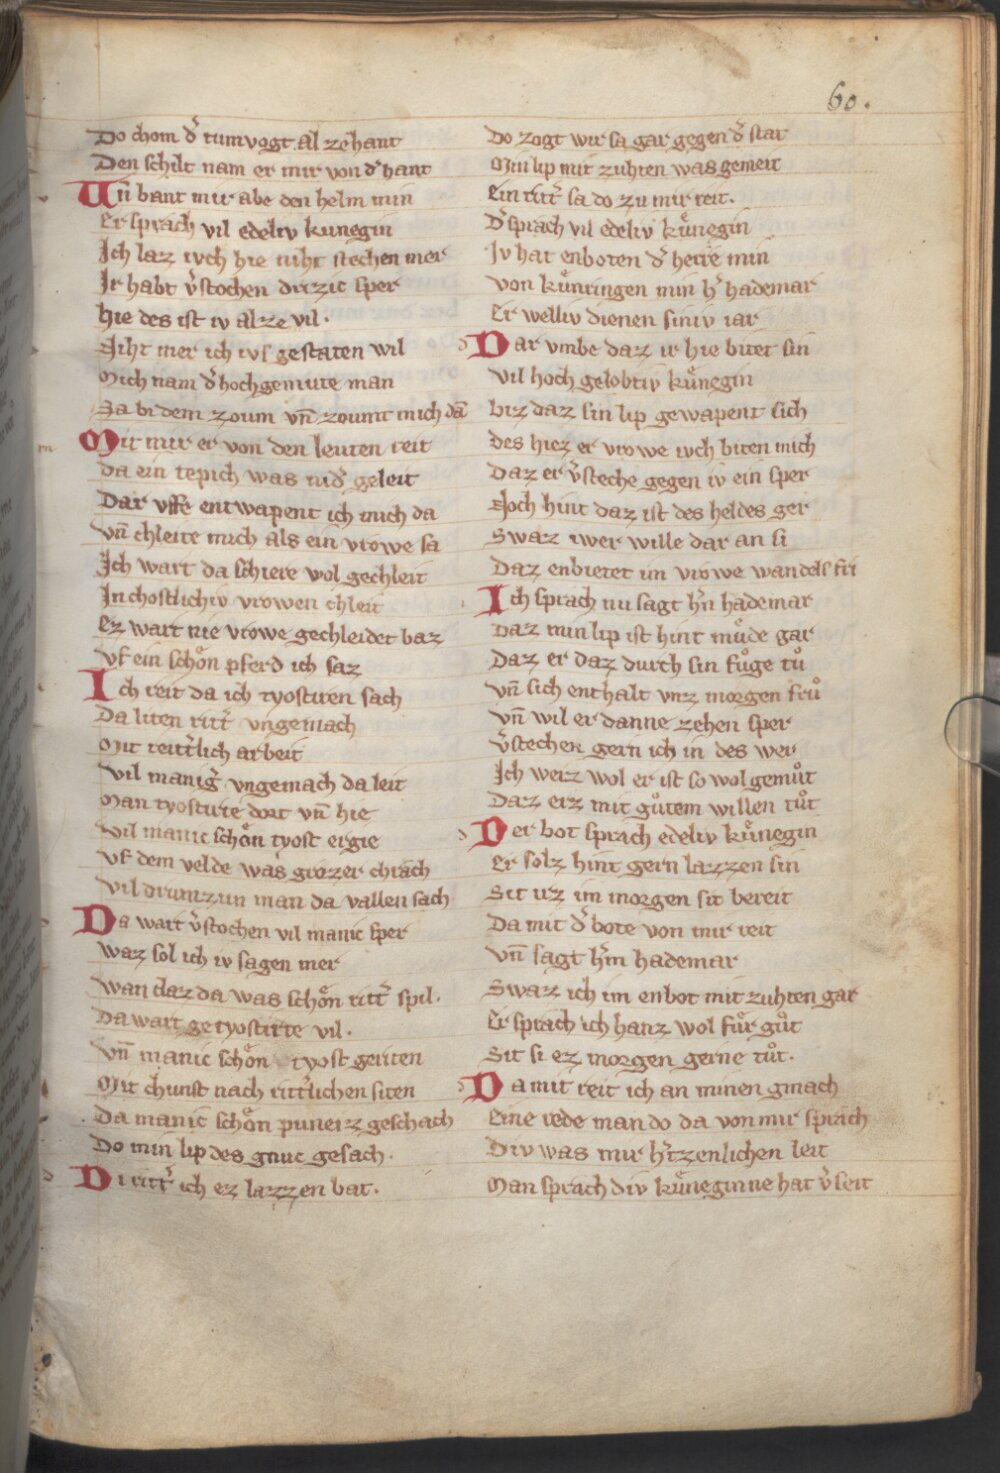 60.
Do chom d̾ tumvogt al zehant
Den schilt nam er mir von d̾ hant
Vn̄ bant mir abe den helm min
Er sprach vil edeliv kunegin
Ich laz ivch hie niht stechen mer
Ir habt v̾stochen drizic sper
hie des ist iv al ze vil.
Niht mer ich ivſ gestaten wil
Mich nam d̾ hochgemute man
Sa bi dem zoum vn̄ zoumt mich dā
Mit mir er von den leuten reit
da ein tepich was nid̾ geleit
Dar vffe entwapent ich mich da
Vn̄ chleite mich als ein vrowe sa
Ich wart da schiere wol gechleit
In chostlichiv vrowen chleit
Ez wart nie vrowe gechleidet baz
Vf ein schoͤn pferd ich saz
Ich reit da ich tyostiren sach
Da liten ritt̾ vngemach
Mit reitt̾lich arbeit
Vil manig̾ vngemach da leit
Man tyostirte dort vn̄ hie
Vil manic schoͤn tyost ergie
Vf dem velde was grozer chrach
Vil drumzun man da vallen sach
Da wart v̾stochen vil manic sper
Waz sol ich iv sagen mer
Wan daz da was schoͤn ritt̾ spil.
Da wart getyostirte vil.
Vn̄ manic schoͤn tyost geriten
Mit chunst nach ritt̾lichen siten
Da manic schoͤn puneiz geschach
Do min lip des gnuc gesach.
Di ritt̾ ich ez lazzen bat.
Do zogt wir sa gar gegen d̾ stat
Min lip mit zuhten was gemeit
Ein ritt̾ sa do zu mir reit.
D̾ sprach vil edeliv kuͤnegin
Iv hat enboten d̾ herre min
von kuͤnringen min h̾ hademar
Er welliv dienen siniv iar
Dar vmbe daz ir hie bitet sin
Vil hoch gelobtiv kuͤnegin
biz daz sin lip gewapent sich
des hiez er vrowe ivch biten mich
Daz er v̾steche gegen iv ein sper
Noch hint daz ist des heldes ger
Swaz iwer wille dar an si
Daz enbietet im vrowe wandels fri
Ich sprach nu sagt h̾n hademar
Daz min lip ist hint muͤde gar
Daz er daz durch sin fuͦge tuͦ
Vn̄ sich enthalt vnz morgen fruͦ
Vn̄ wil er danne zehen sper
v̾stechen gern ich in des wer
Ich weiz wol er ist so wol gemuͦt
Daz erz mit guͦtem willen tuͦt
Der bot sprach edeliv kuͤnegin
Er solz hint gern lazzen sin
Sit irz im morgen sit bereit
Da mit d̾ bote von mir reit
Vn̄ sagt h̾rn hademar
Swaz ich im enbot mit zuhten gar
Er sprach ich hanz wol fuͤr guͦt
Sit si ez morgen gerne tuͦt.
Da mit reit ich an minen gmach
Eine rede man do da von mir sprach
Div was mir h̾tzenlichen leit
Man sprach div kuͤneginne hat v̾seit